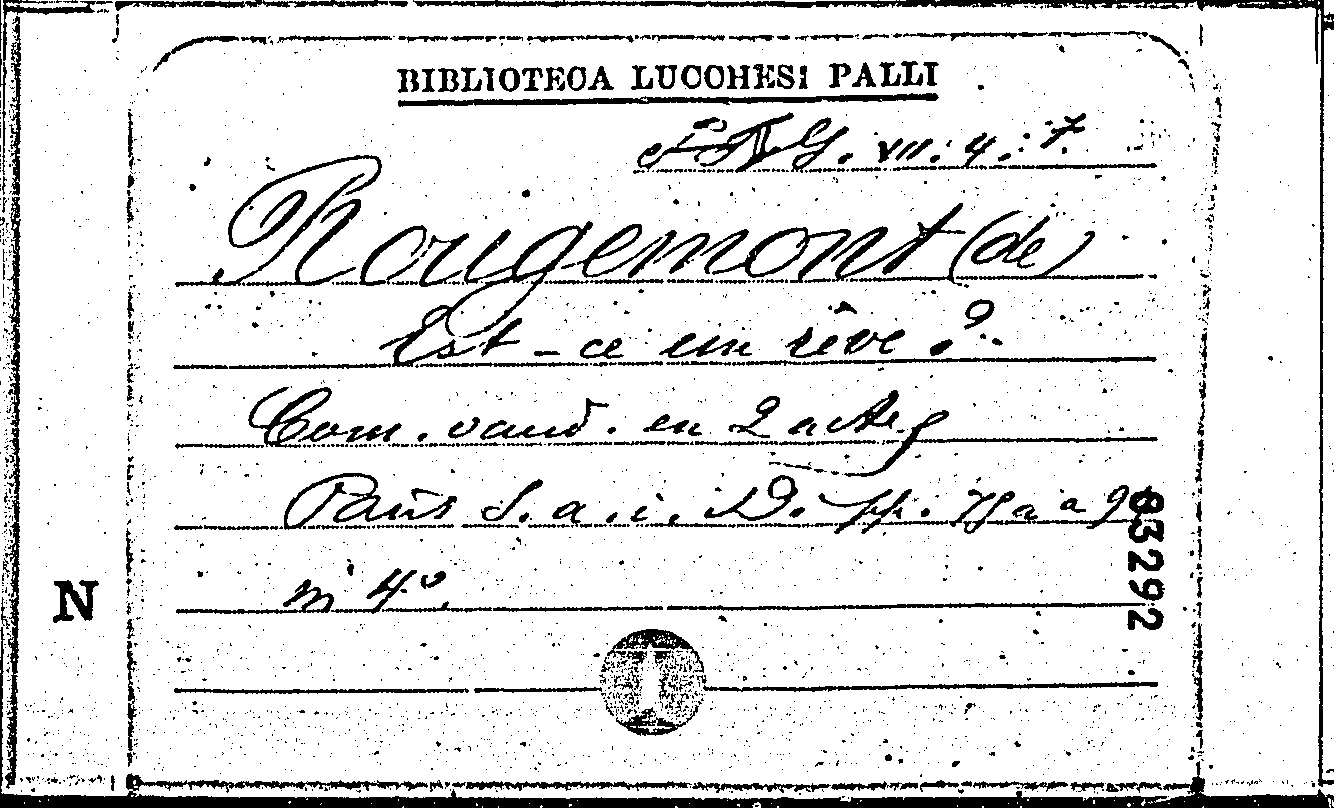 BIBLIOTECA LUCCHESI PALLI
VII. 4. 7.
Rougemont (de)
Est-ce un rêve ?
Com. vaud. en 2 actes
Paris S. a. i. D. pp. a
in 4°.
N
83292